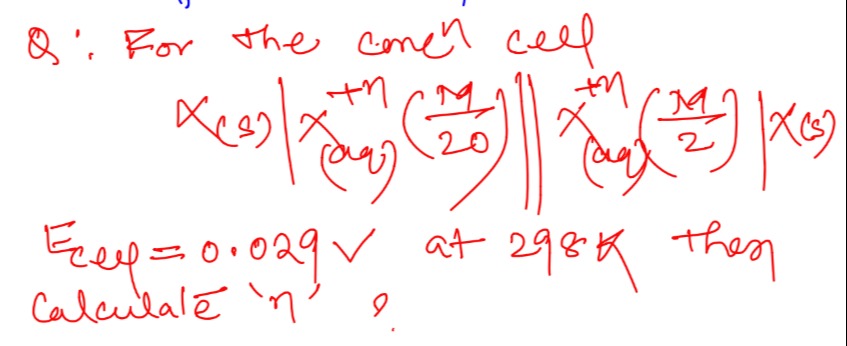 Q: For the concn cell
X(s) | X+n(aq) (M/20) || X+n(aq) (M/2) | X(s)
Ecell = 0.029 V at 298 K then
Calculate 'n' ?